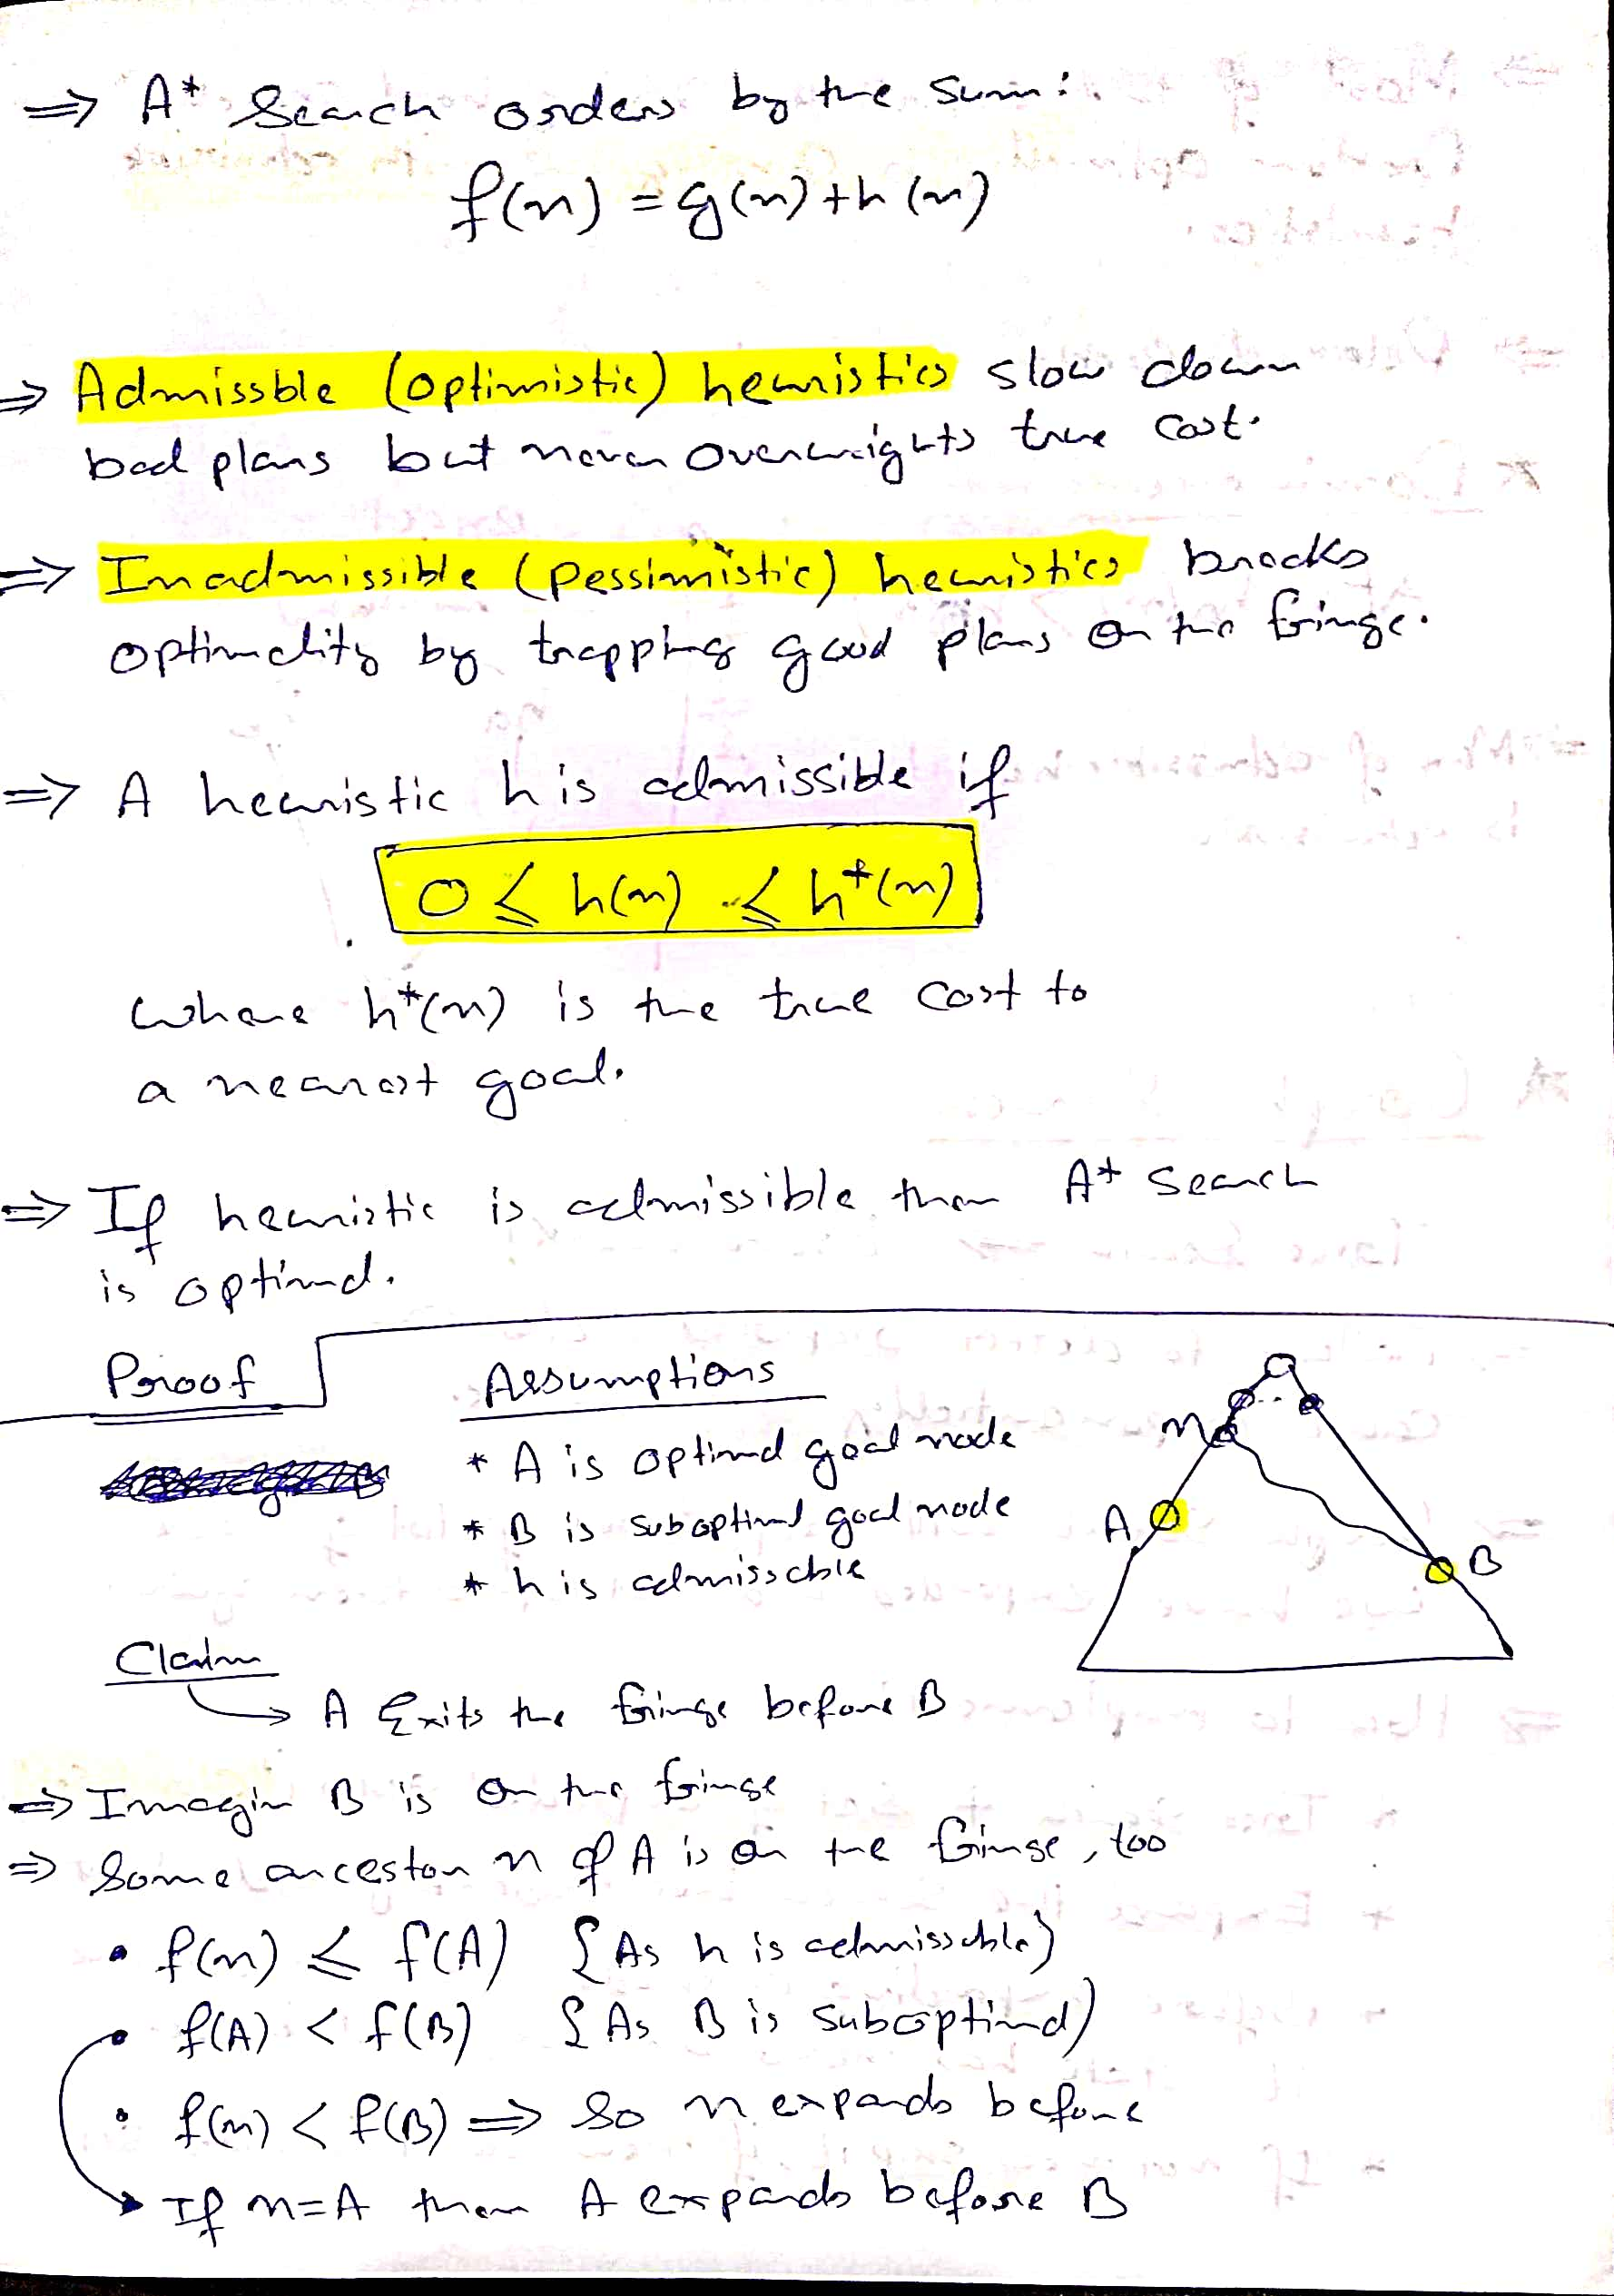 ⇒ A* Search orders by the sum:
f(n) = g(n) + h(n)
⇒ Admissble (optimistic) heuristics slow down
bad plans but never overweights true cost.
⇒ Inadmissible (pessimistic) heuristics breaks
optimality by trapping good plans on the fringe.
⇒ A heuristic h is admissible if
0 ≤ h(n) ≤ h*(n)
where h*(n) is the true cost to
a nearest goal.
⇒ If heuristic is admissible then A* search
is optimal.
Proof
Assumptions
* A is optimal goal node
* B is suboptimal goal node
* h is admissable
n
A
B
Claim
→ A Exits the fringe before B
⇒ Imagin B is on the fringe
⇒ Some ancestor n of A is on the fringe, too
• f(n) ≤ f(A) {As h is admissable}
• f(A) < f(B) {As B is suboptimal}
• f(n) < f(B) ⇒ So n expands before
If n=A then A expands before B